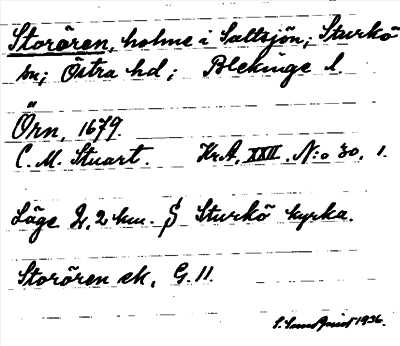 Storören, holme i Saltsjön; Sturkö
sn; Östra hd; Blekinge l.
Örn, 1679.
C. M. Stuart. KrA, XXII, N:o 30, 1.
Läge 2,2 km. S Sturkö kyrka.
Storören ek, G. 11.
1936